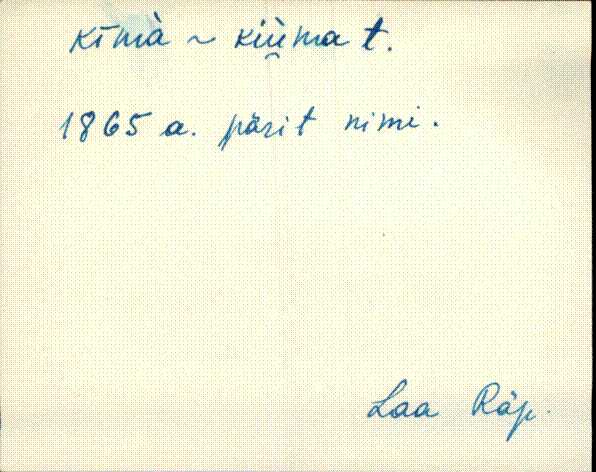 kīmà ~ kiü̯ma t.
1865 a. pärit nimi.
Laa Räp.